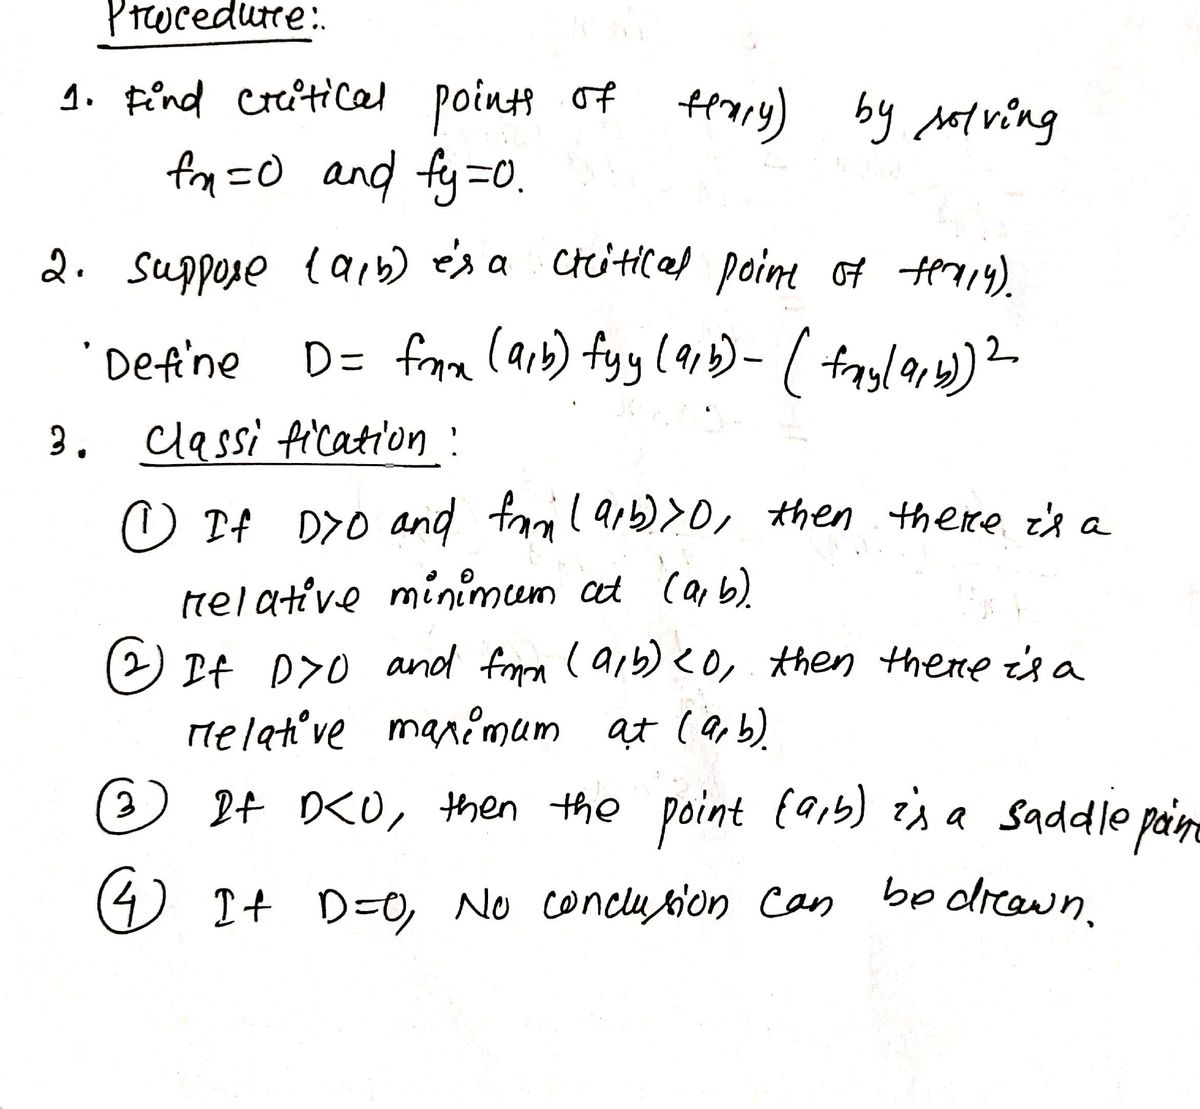 Procedure:.
1. Find critical points of f(x,y) by solving
fx=0 and fy=0.
2. Suppose (a,b) is a critical point of f(x,y).
Define D= fxx (a,b) fyy (a,b) - ( fxy(a,b))2
3. Classification:
① If D>0 and fxx (a,b)>0, then there is a
relative minimum at (a, b).
② If D>0 and fxx (a,b)<0, then there is a
relative maximum at (a, b).
③ If D<0, then the point (a,b) is a saddle point
④ If D=0, No conclusion can be drawn.